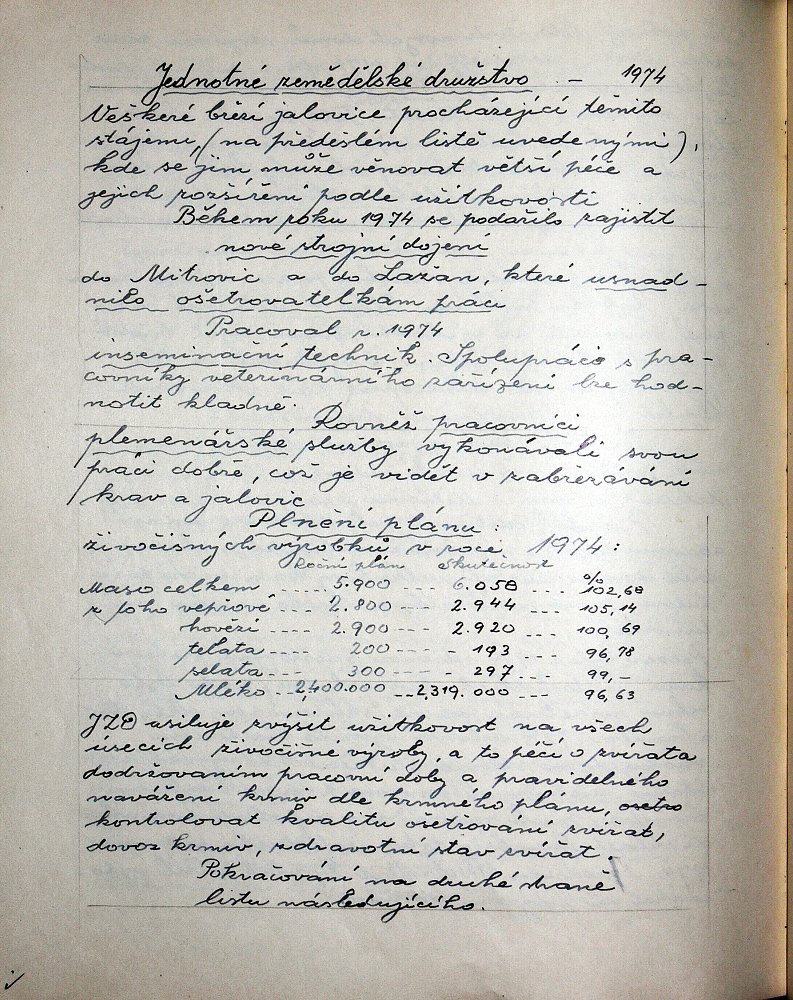 Jednotné zemědělské družstvo – 1974
Veškeré březí jalovice procházející těmito
stájemi, (na předešlém listě uvedenými),
kde se jim může věnovat větší péče a
jejich rozšíření podle užitkovosti
Během roku 1974 se podařilo zajistit
nové strojní dojení
do Mitrovic a do Lažan, které usnad-
nilo ošetrovatelkám práci
Pracoval r. 1974
inseminační technik. Spolupráce s pra-
covníky veterinárního zařízení lze hod-
notit kladně.
Rovněž pracovníci
plemenářské služby vykonávali svou
práci dobře, což je vidět v zabřezávání
krav a jalovic
Plnění plánu:
živočišných výrobků v roce 1974:
Roční plán Skutečnost %
Maso celkem ..... 5.900 ---- 6.058 ... 102,68
z toho vepřové ---- 2.800 --- 2.944 --- 105,14
hovězí ---- 2.900 --- 2.920 --- 100,69
telata ---- 200 --- - 193 --- 96,78
selata ---- 300 --- - 297 --- 99,-
Mléko -- 2,400.000 -- 2,319.000 --- 96,63
JZD usiluje zvýšit užitkovost na všech
úsecích živočišné výroby, a to péčí o zvířata
dodržovaním pracovní doby a pravidelného
navážení krmiv dle krmného plánu,
kontrolovat kvalitu ošetřování zvířat,
dovoz krmiv, zdravotní stav zvířat.
Pokračování na druhé straně
listu následujícího.